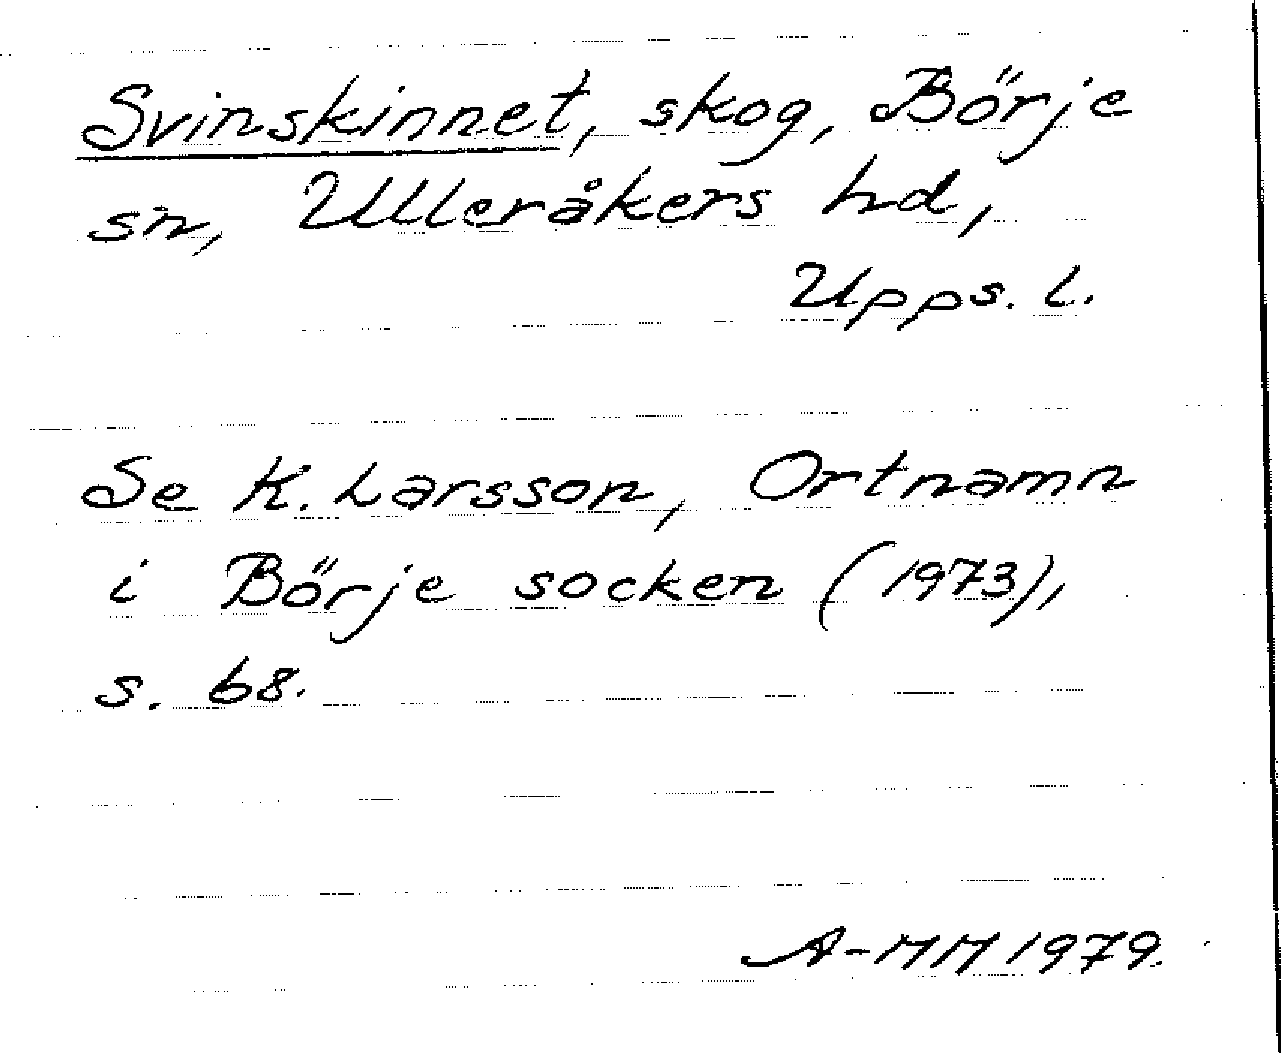 Svinskinnet, skog, Börje
sn, Ulleråkers hd,
Upps. l.
Se K. Larsson, Ortnamn
i Börje socken (1973),
s. 68.
A-MM 1979.